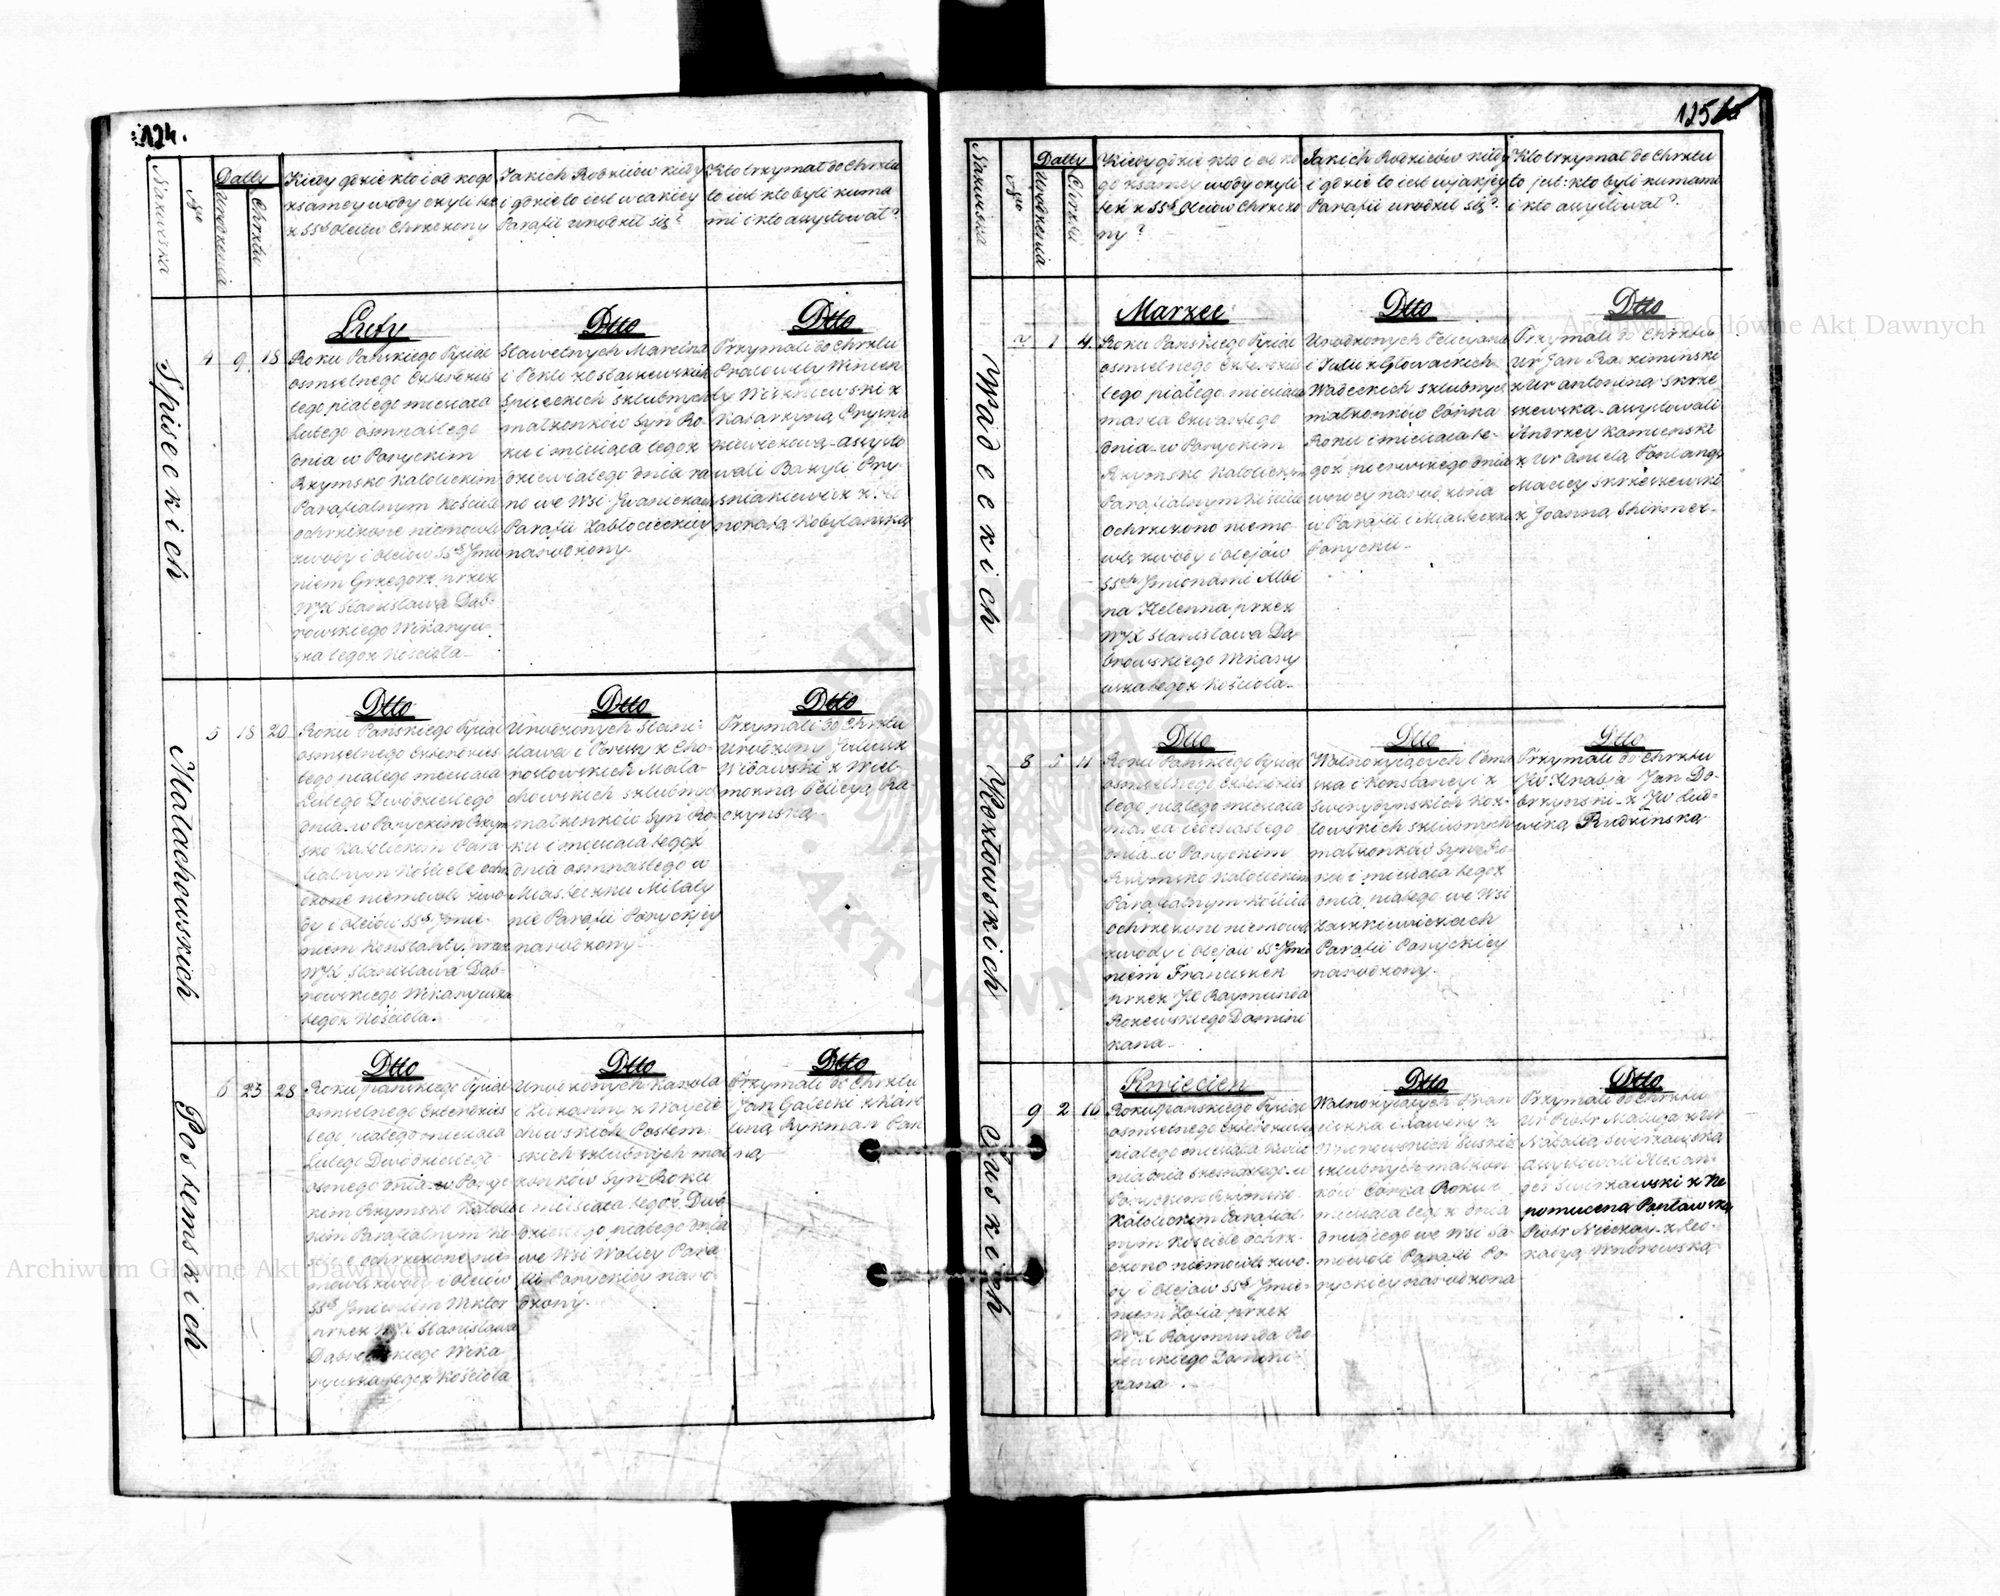 124.
Nazwiska
No
Datty
Urodzenia
Chrztu
Kiedy gdzie kto i od kogo
z samey wody czyli też
z SSch Oleiów Chrzczony
Jakich Rodziców kiedy
i gdzie to iest w iakiey
Parafii urodził się?
Kto trzymał do Chrztu
to iest kto byli kuma
mi i kto assystował?
Spiseckich
4 9 18
Luty
Roku Pańskiego Tysiąc
osmsetnego Czterdzies
tego piątego miesiąca
Lutego osmnastego
dnia w Poryckim
Rzymsko Katolickim
Parafialnym Kościele
ochrzczone niemowle
z wody i Oleiów SSch Jmie
niem Grzegorz przez
WJX Stanisława Dąb-
rowskiego Wikaryu-
sza tegoż Kościoła
Dtto
Sławetnych Marcina
i Tekli z Staszewskich
Spiseckich szlubnych
małżonków Syn Ro-
ku i miesiąca tegoż
dziewiątego dnia ra
no we Wsi Iwaniczach
Parafii Zabłocieckiey
narodzony.
Dtto
Trzymali do Chrztu
Pracowity Wincen
ty Wiszniewski z
Katarzyną
assysto
wali Bazyli Pry
sniakiewicz z Ho
noratą Kobylańską
Małachowskich
5 18 20
Dtto
Roku Pańskiego Tysiąc
osmsetnego Czterdzies
tego piątego miesiąca
Lutego Dwódziestego
dnia w Poryckim Rzym
sko Katolickim Para
fialnym Kościele ochrz
czone niemowle z wo
dy i oleiów SSch Jmie-
niem Konstanty, przez
WJX Stanisława Dąb-
rowskiego Wikaryusza
tegoż Kościoła.
Dtto
Urodzonych Stani-
sława i Teressy z Cho-
rosłowskich Mała-
chowskich szlubnych
małżonków Syn Ro-
ku i miesiąca tegoż
dnia osmnastego w
Miasteczku Milaty
nie Parafii Poryckiey
narodzony
Dtto
Trzymali do Chrztu
Urodzony Juliusz
Widawski z Wiel-
możną Felicyą Ra-
czyńską
Postemskich
6 23 28
Dtto
Roku Pańskiego Tysiąc
osmsetnego Czterdzies
tego piątego miesiąca
Lutego Dwódziestego
osmego dnia w Poryc
kim Rzymsko Katolic
kim Parafialnym Ko
ściele ochrzczone nie
mowle z wody i oleiów
SSch Jmieniem Wiktor
przez WJX Stanisława
Dąbrowskiego Wika
ryusza tegoż Kościoła
Dtto
Urodzonych Karola
i Zuzanny z Woycie
chowskich Postem
skich szlubnych mał
żonków Syn Roku
i miesiąca tegoż Dwó
dziestego piątego dnia
we Wsi Wolicy Para
fii Poryckiey naro-
dzony.
Dtto
Trzymali do Chrztu
Jan Gałecki z Kar
liną Rykman Pan
ną
125
Nazwiska
No
Datty
Urodzenia
Chrztu
Kiedy gdzie kto i od ko
go z samey wody czyli
też z SSch Oleiów Chrzczo
ny?
Jakich Rodziców kiedy
i gdzie to iest w jakiey
Parafii urodził się?
Kto trzymał do Chrztu
to jest: kto byli kumami
i kto assystował?
Wądeckich
7 1 4
Marzec
Roku Pańskiego Tysiąc
osmsetnego Czterdzies
tego piątego miesiąca
marca Czwartego
dnia w Poryckim
Rzymsko Katolickim
Parafialnym Kościele
ochrzczono niemo-
wle z wody i olejów
SSch Jmionami Albi
na Helenna przez
WJX Stanisława Dą-
browskiego Wikary
usza tegoż Kościoła
Dtto
Urodzonych Felicyana
i Julii z Głowackich
Wadeckich szlubnych
małżonków Córka
Roku i miesiąca te-
goż pierwszego dnia
w nocy narodzona
w Parafii i Miasteczku
Porycku
Dtto
Trzymali do Chrztu
Ur Jan Razimiński
z Ur Antoniną Skrze
szewską assystowali
Andrzey Kamieński
z Ur Anielą Fontang
Maciey Skrzeszewski
z Joanną Shirmer
Kozłowskich
8 5 11
Dtto
Roku Pańskiego Tysiąc
osmsetnego Czterdzies
tego piątego miesiąca
marca iedenastego
dnia w Poryckim
Rzymsko Katolickim
Parafialnym Kościele
ochrzczone niemowle
z wody i olejów SSch Jmie
niem Franciszek
przez JX Raymunda
Rozewskiego Domini
kana
Dtto
Wolnożyiących Toma
sza i Konstancyi z
Swirydzyńskich Koz-
łowskich szlubnych
małżonków Syn Ro-
ku i miesiąca tegoż
dnia piątego we Wsi
Zaszkiewiczach
Parafii Poryckiey
narodzony.
Dtto
Trzymali do Chrztu
JW Hrabia Jan Do-
brzynski z JW Lud-
wiką Rudzińską
Suskich
9 2 16
Kwiecień
Roku Pańskiego Tysiąc
osmsetnego Czterdziestego
piątego miesiąca Kwiet
nia dnia szesnastego w
Poryckim Rzymsko
Katolickim Parafial-
nym Kościele ochrz-
czono niemowle z wo-
dy i olejów SSch Jmie-
niem Zofia przez
WJX Raymunda Ro
zewskiego Domini
kana.
Dtto
Wolnożyiących Fran
ciszka i Xawery z
Wndrowskich Suskich
szlubnych małżon
ków Córka Roku i
miesiąca tegoż dnia
drugiego we Wsi Sa
mowoli Parafii Po
ryckiey narodzona
Dtto
Trzymali do Chrztu
Ur Piotr Maluga z Ur
Natalią Swierzawską
assystowali Alexan-
der Swierzawski z Ne
pomuceną Pontawską
Piotr Nieczay z Leo-
kadyą Wndrowską
Archiwum Główne Akt Dawnych
Archiwum Główne Akt Dawnych